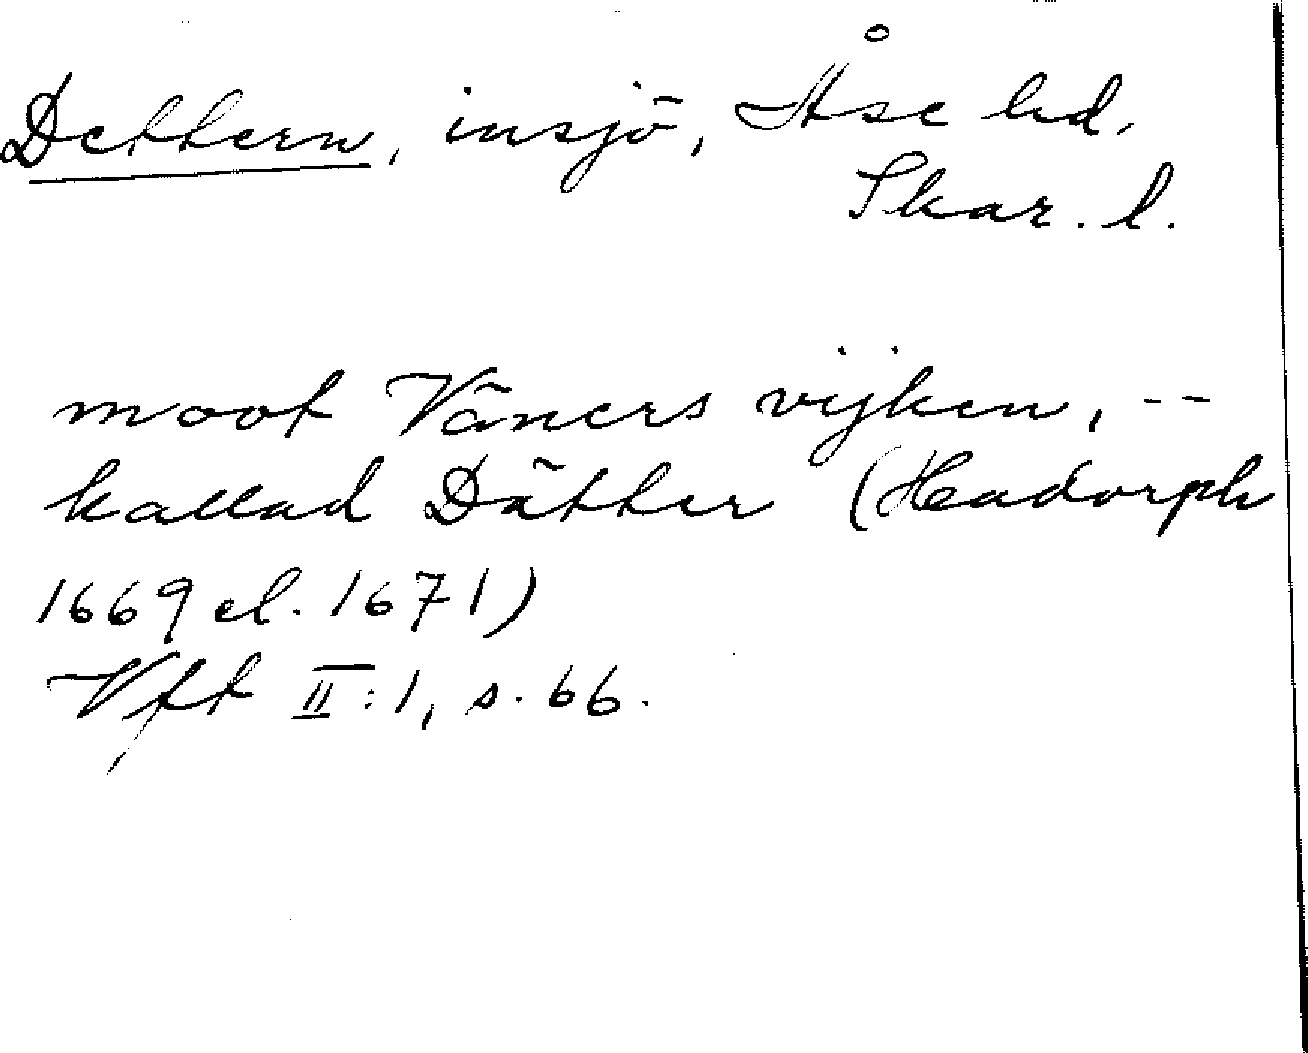 Dettern, insjö, Åse hd,
Skar. l.
moot Väners vijken, --
kallad Dätter (Hadorph
1669 el. 1671)
Vft II:1, s. 66.